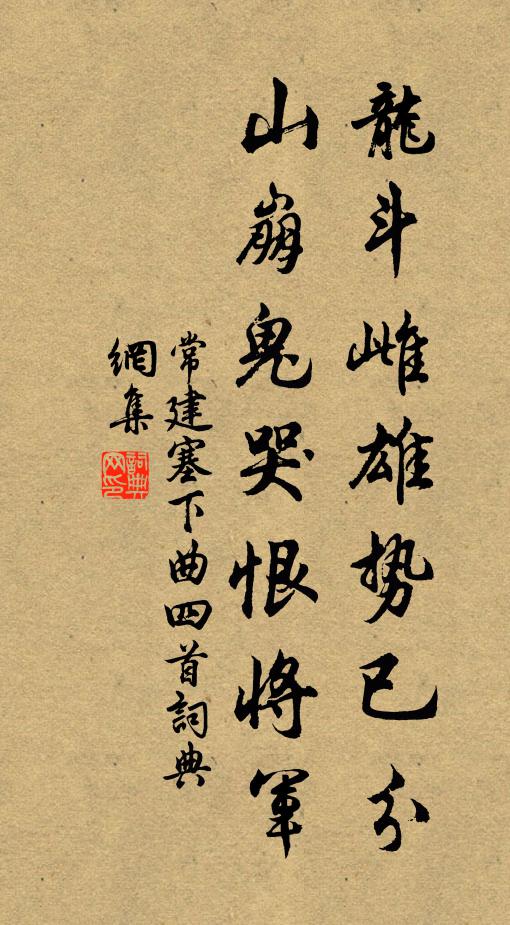 龍斗雌雄勢已分
山崩鬼哭恨將軍
常建塞下曲四首詞典
網集
詞典
网印